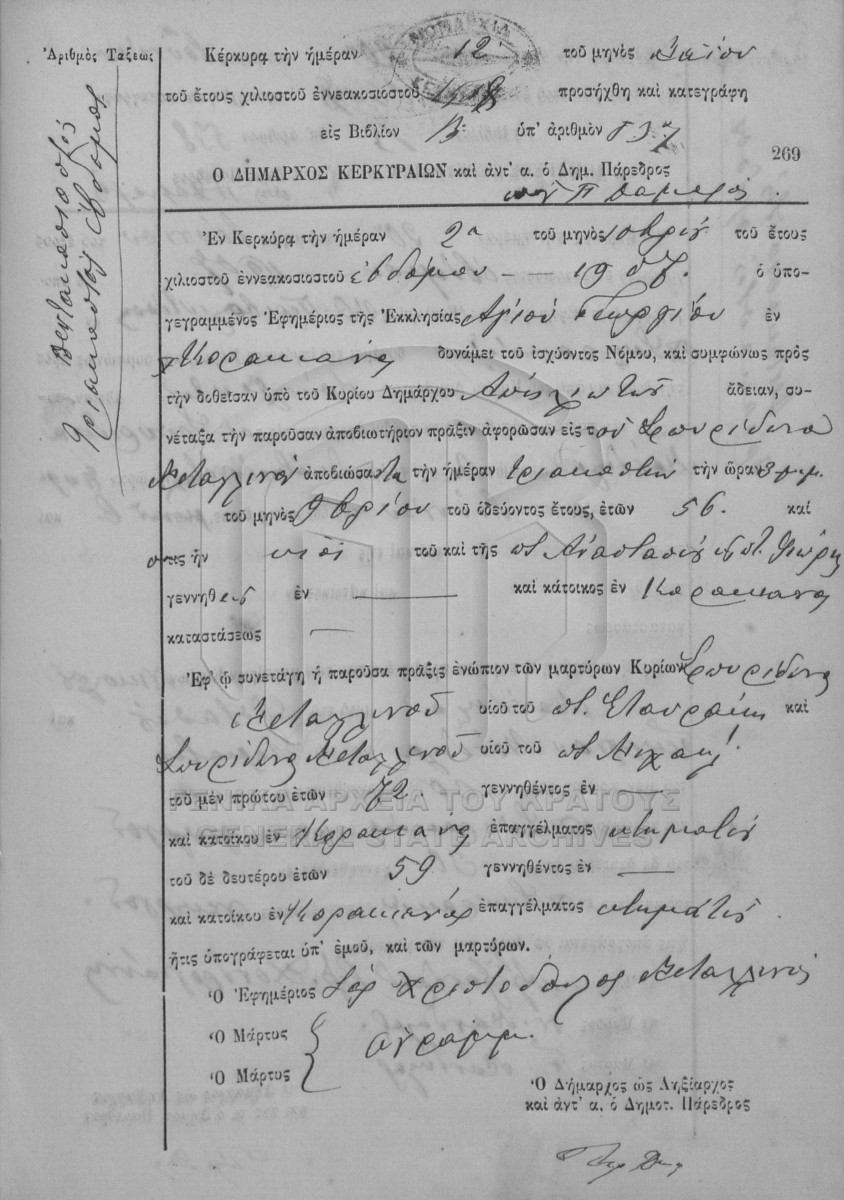 Ἀριθμὸς Τάξεως
Πεντακοσιοστὸς
τριακοστὸς ἕβδομος
ΚΕΡΚΥΡΑ
Κέρκυρα τὴν ἡμέραν 12 τοῦ μηνὸς Μαΐου
τοῦ ἔτους χιλιοστοῦ ἐννεακοσιοστοῦ 1908 προσήχθη καὶ κατεγράφη
εἰς Βιβλίον Β ὑπ' ἀριθμὸν 537
269
Ὁ ΔΗΜΑΡΧΟΣ ΚΕΡΚΥΡΑΙΩΝ καὶ ἀντ' α. ὁ Δημ. Πάρεδρος
Ἐν Κερκύρᾳ τὴν ἡμέραν 2α τοῦ μηνὸς 10βρίου τοῦ ἔτους
χιλιοστοῦ ἐννεακοσιοστοῦ ἑβδόμου — 1907. ὁ ὑπο-
γεγραμμένος Ἐφημέριος τῆς Ἐκκλησίας Ἁγίου Γεωργίου ἐν
Κορακιάνα δυνάμει τοῦ ἰσχύοντος Νόμου, καὶ συμφώνως πρὸς
τὴν δοθεῖσαν ὑπὸ τοῦ Κυρίου Δημάρχου ἄδειαν, συ-
νέταξα τὴν παροῦσαν ἀποβιωτήριον πρᾶξιν ἀφορῶσαν εἰς τοῦ Σπυρίδωνα
Μεταλληνοῦ ἀποβιώσαντα τὴν ἡμέραν τριακοστὴν τὴν ὥραν 3 μ.μ.
τοῦ μηνὸς 9βρίου τοῦ ὁδεύοντος ἔτους, ἐτῶν 56. καὶ
ὅστις ἦν υἱὸς τοῦ καὶ τῆς ποτ. Ἀναστασίου
γεννηθεὶς ἐν — καὶ κάτοικος ἐν Κορακιάνα
καταστάσεως —
Ἐφ' ᾧ συνετάγη ἡ παροῦσα πρᾶξις ἐνώπιον τῶν μαρτύρων Κυρίων Σπυρίδωνα
Μεταλληνοῦ υἱοῦ τοῦ ποτ. Σταυράκη καὶ
Σπυρίδωνα Μεταλληνοῦ υἱοῦ τοῦ ποτ. Μιχαήλ
τοῦ μὲν πρώτου ἐτῶν 72. γεννηθέντος ἐν —
καὶ κατοίκου ἐν Κορακιάνα ἐπαγγέλματος κτηματίου
τοῦ δὲ δευτέρου ἐτῶν 59 γεννηθέντος ἐν —
καὶ κατοίκου ἐν Κορακιάνα ἐπαγγέλματος κτηματίου
ἥτις ὑπογράφεται ὑπ' ἐμοῦ, καὶ τῶν μαρτύρων.
Ὁ Ἐφημέριος Ἱερ Χριστόδουλος Μεταλληνός
Ὁ Μάρτυς
ἀγραμμ.
Ὁ Μάρτυς
Ὁ Δήμαρχος ὡς Ληξίαρχος
καὶ ἀντ' α. ὁ Δημοτ. Πάρεδρος
ΓΕΝΙΚΑ ΑΡΧΕΙΑ ΤΟΥ ΚΡΑΤΟΥΣ
GENERAL STATE ARCHIVES